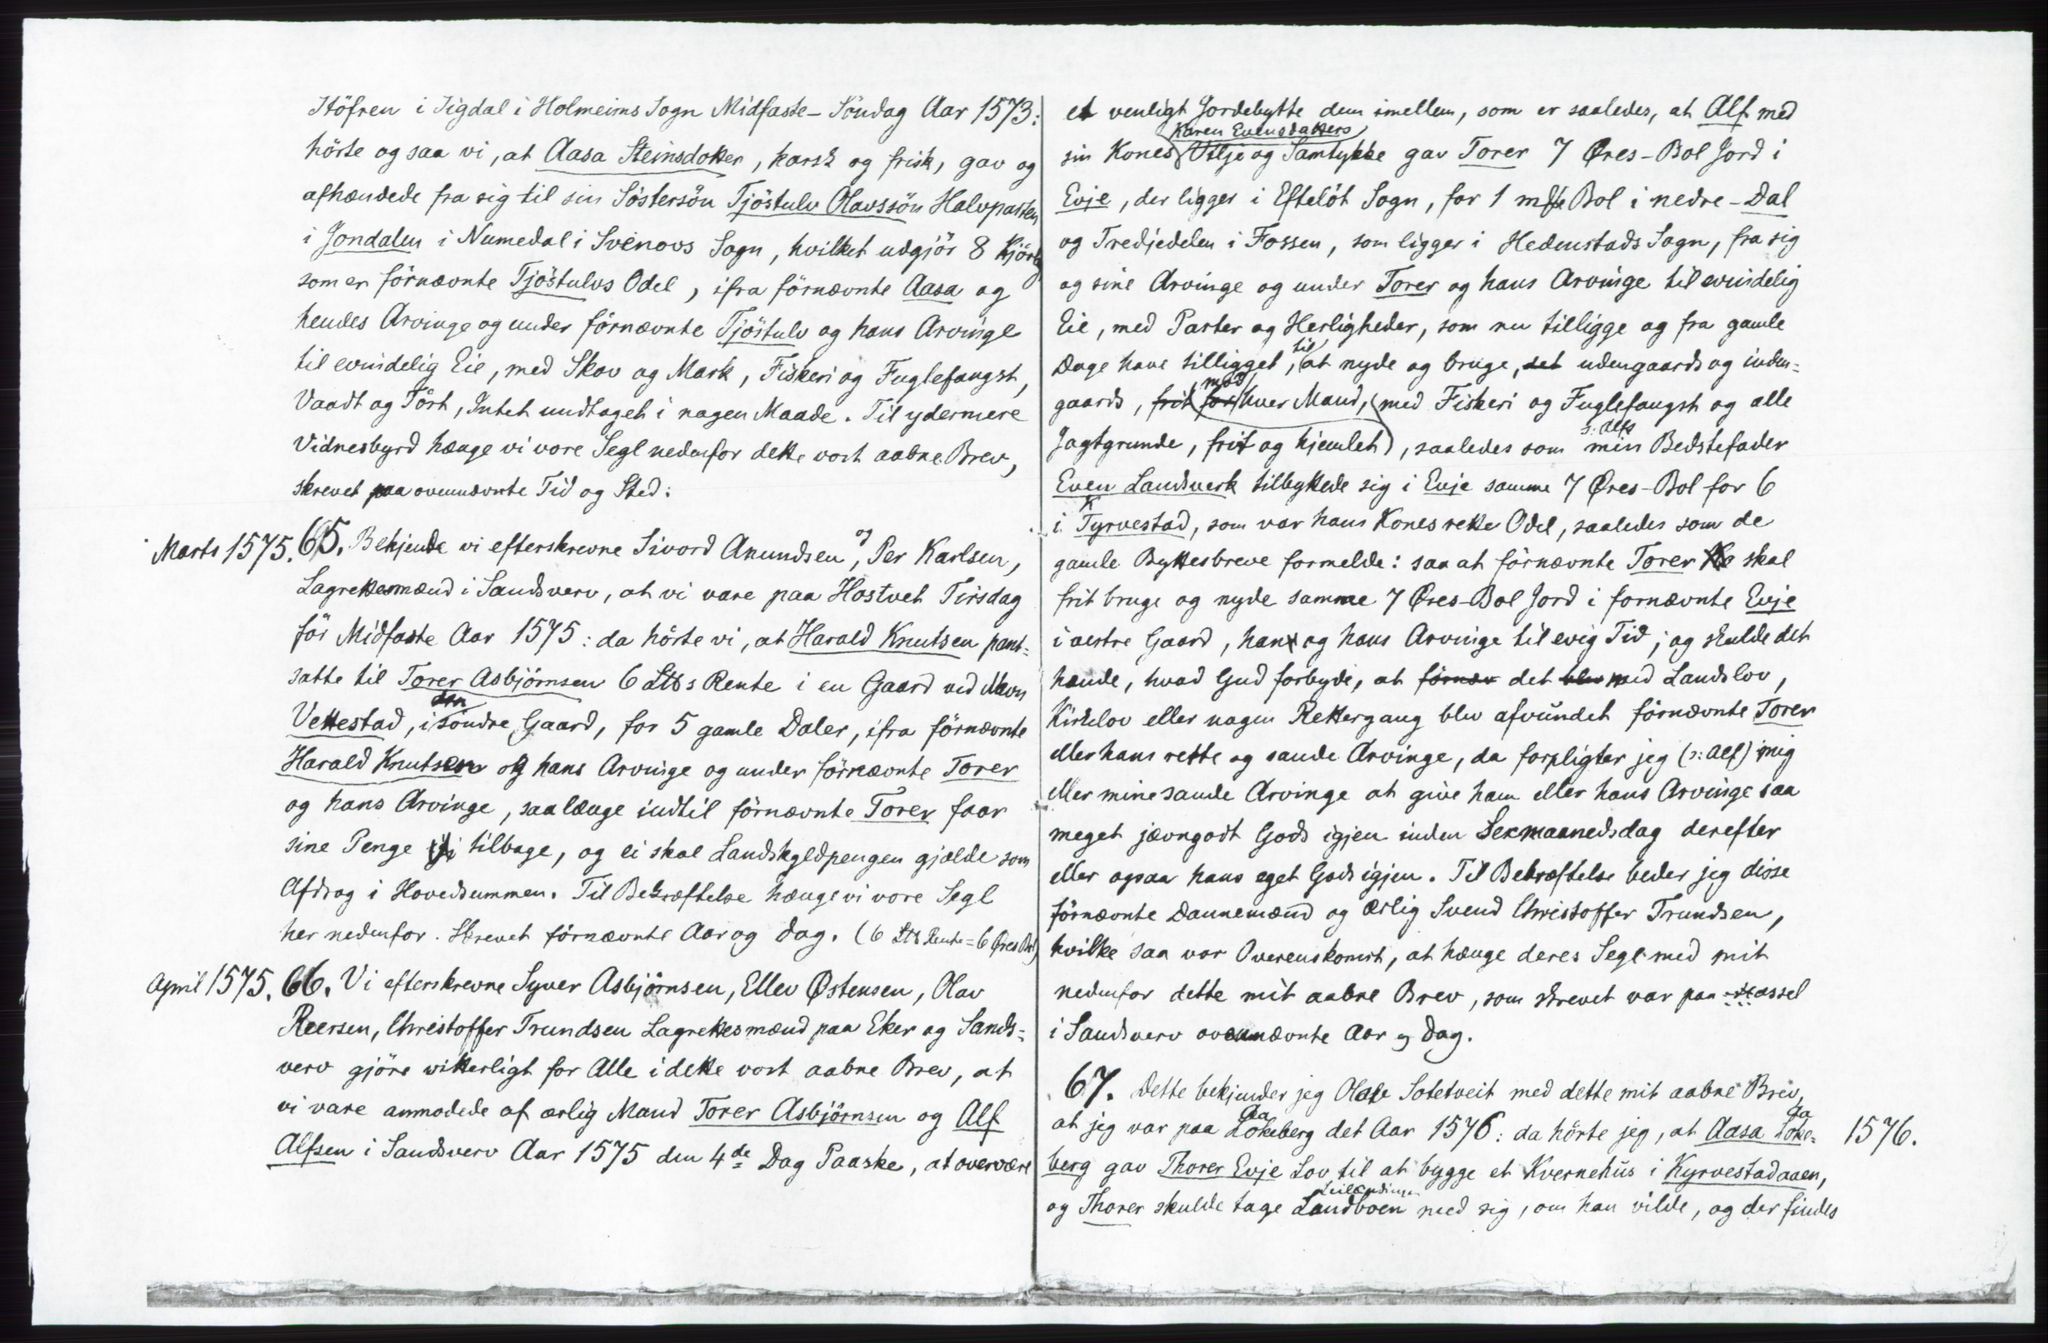 Stöfren i Sigdal i Holmeims Sogn Midfaste-Söndag Aar 1573:
hörte og saa vi, at Aasa Steinsdotter, karsk og frisk, gav og
afhændede fra sig til sin Söstersön Tjöstulv Olavssön Halvparten
i Jondalen i Numedal i Svenovs Sogn, hvilket udgjör 8
som er förnævnte Tjöstulvs Odel, ifra förnævnte Aasa og
hendes Arvinge og under förnævnte Tjöstulv og hans Arvinge
til evindelig Eie, med Skov og Mark, Fiskeri og Fuglefangst,
Vaadt og Tört, Intet undtaget i nogen Maade. Til ydermere
Vidnesbyrd hænge vi vore Segl nedenfor dette vort aabne Brev,
skrevet paa ovennævnte Tid og Sted:
Marts 1575. 65. Bekjende vi efterskrevne Sivord Amundsen og Per Karlsen,
Lagrettesmænd i Sandsverv, at vi vare paa Hostvet Tirsdag
för Midfaste Aar 1575: da hörte vi, at Harald Knutsen pant-
satte til Torer Asbjörnsen 6 Lbs Rente i en Gaard ved Navn
Vettestad, i den söndre Gaard, for 5 gamle Daler, ifra förnævnte
Harald Knutsen og hans Arvinge og under förnævnte Torer
og hans Arvinge, saalænge indtil förnævnte Torer faar
sine Penge tilbage, og ei skal Landskyldpengen gjælde som
Afdrag i Hovedsummen. Til Bekræftelse hænge vi vore Segl
her nedenfor. Skrevet förnævnte Aar og Dag. (6 Lbs Rente = 6 Öres Bol)
April 1575. 66. Vi efterskrevne Syver Asbjörnsen, Ellev Östensen, Olav
Reersen, Christoffer Trundsen Lagrettesmænd paa Eker og Sands-
verv gjöre vitterligt for Alle i dette vort aabne Brev, at
vi vare anmodede af ærlig Mand Torer Asbjörnsen og Alf
Alfsen i Sandsverv Aar 1575 den 4de Dag Paaske, at overvære
et venligt Jordebytte dem imellem, som er saaledes, at Alf med
sin Kones Karen Evensdatters Vilje og Samtykke gav Torer 7 Øres-Bol Jord i
Evje, der ligger i Eftelöt Sogn, for 1 Bol i nedre-Dal
og Tredjedelen i Fossen, som ligger i Hedenstads Sogn, fra sig
og sine Arvinge og under Torer og hans Arvinge til evindelig
Eie, med Parter og Herligheder, som nu tilligge og fra gamle
Dage have tilligget, til at nyde og bruge, det udengaards og inden-
gaards, frit for med hver Mand, (med Fiskeri og Fuglefangst og alle
Jagtgrunde, frit og hjemlet), saaledes som min s: Alfs Bedstefader
Even Landsverk tilbyttede sig i Evje samme 7 Øres-Bol for 6
i Tyrvestad, som var hans Kones rette Odel, saaledes som de
gamle Byttesbreve formelde: saa at förnævnte Torer skal
frit bruge og nyde samme 7 Øres-Bol Jord i fornævnte Evje
i østre Gaard, han og hans Arvinge til evig Tid; og skulde det
hænde, hvad Gud forbyde, at förnæv det blev med Landslov,
Kirkelov eller nogen Rettergang blev afvundet förnævnte Torer
eller hans rette og sande Arvinge, da forpligter jeg (s: Alf) mig
eller mine sande Arvinge at give ham eller hans Arvinge saa
meget jævngodt Gods igjen inden Sexmaanedsdag derefter
eller ogsaa hans eget Gods igjen. Til Bekræftelse beder jeg disse
förnævnte Dannemænd og ærlig Svend Christoffer Trundsen,
hvilke saa vor Overenskomst, at hænge deres Segl med mit
nedenfor dette mit aabne Brev, som skrevet var paa
i Sandsverv ovennævnte Aar og Dag.
67. Dette bekjender jeg Olav Sotetveit med dette mit aabne Brev,
at jeg var paa Lokeberg det Aar 1576: da hörte jeg, at Aasa Loke- 1576.
berg gav Thorer Evje Lov til at bygge et Kvernehüs i Kyrvestadaaen,
og Thorer skulde tage Landboen med sig, om han vilde, og der findes